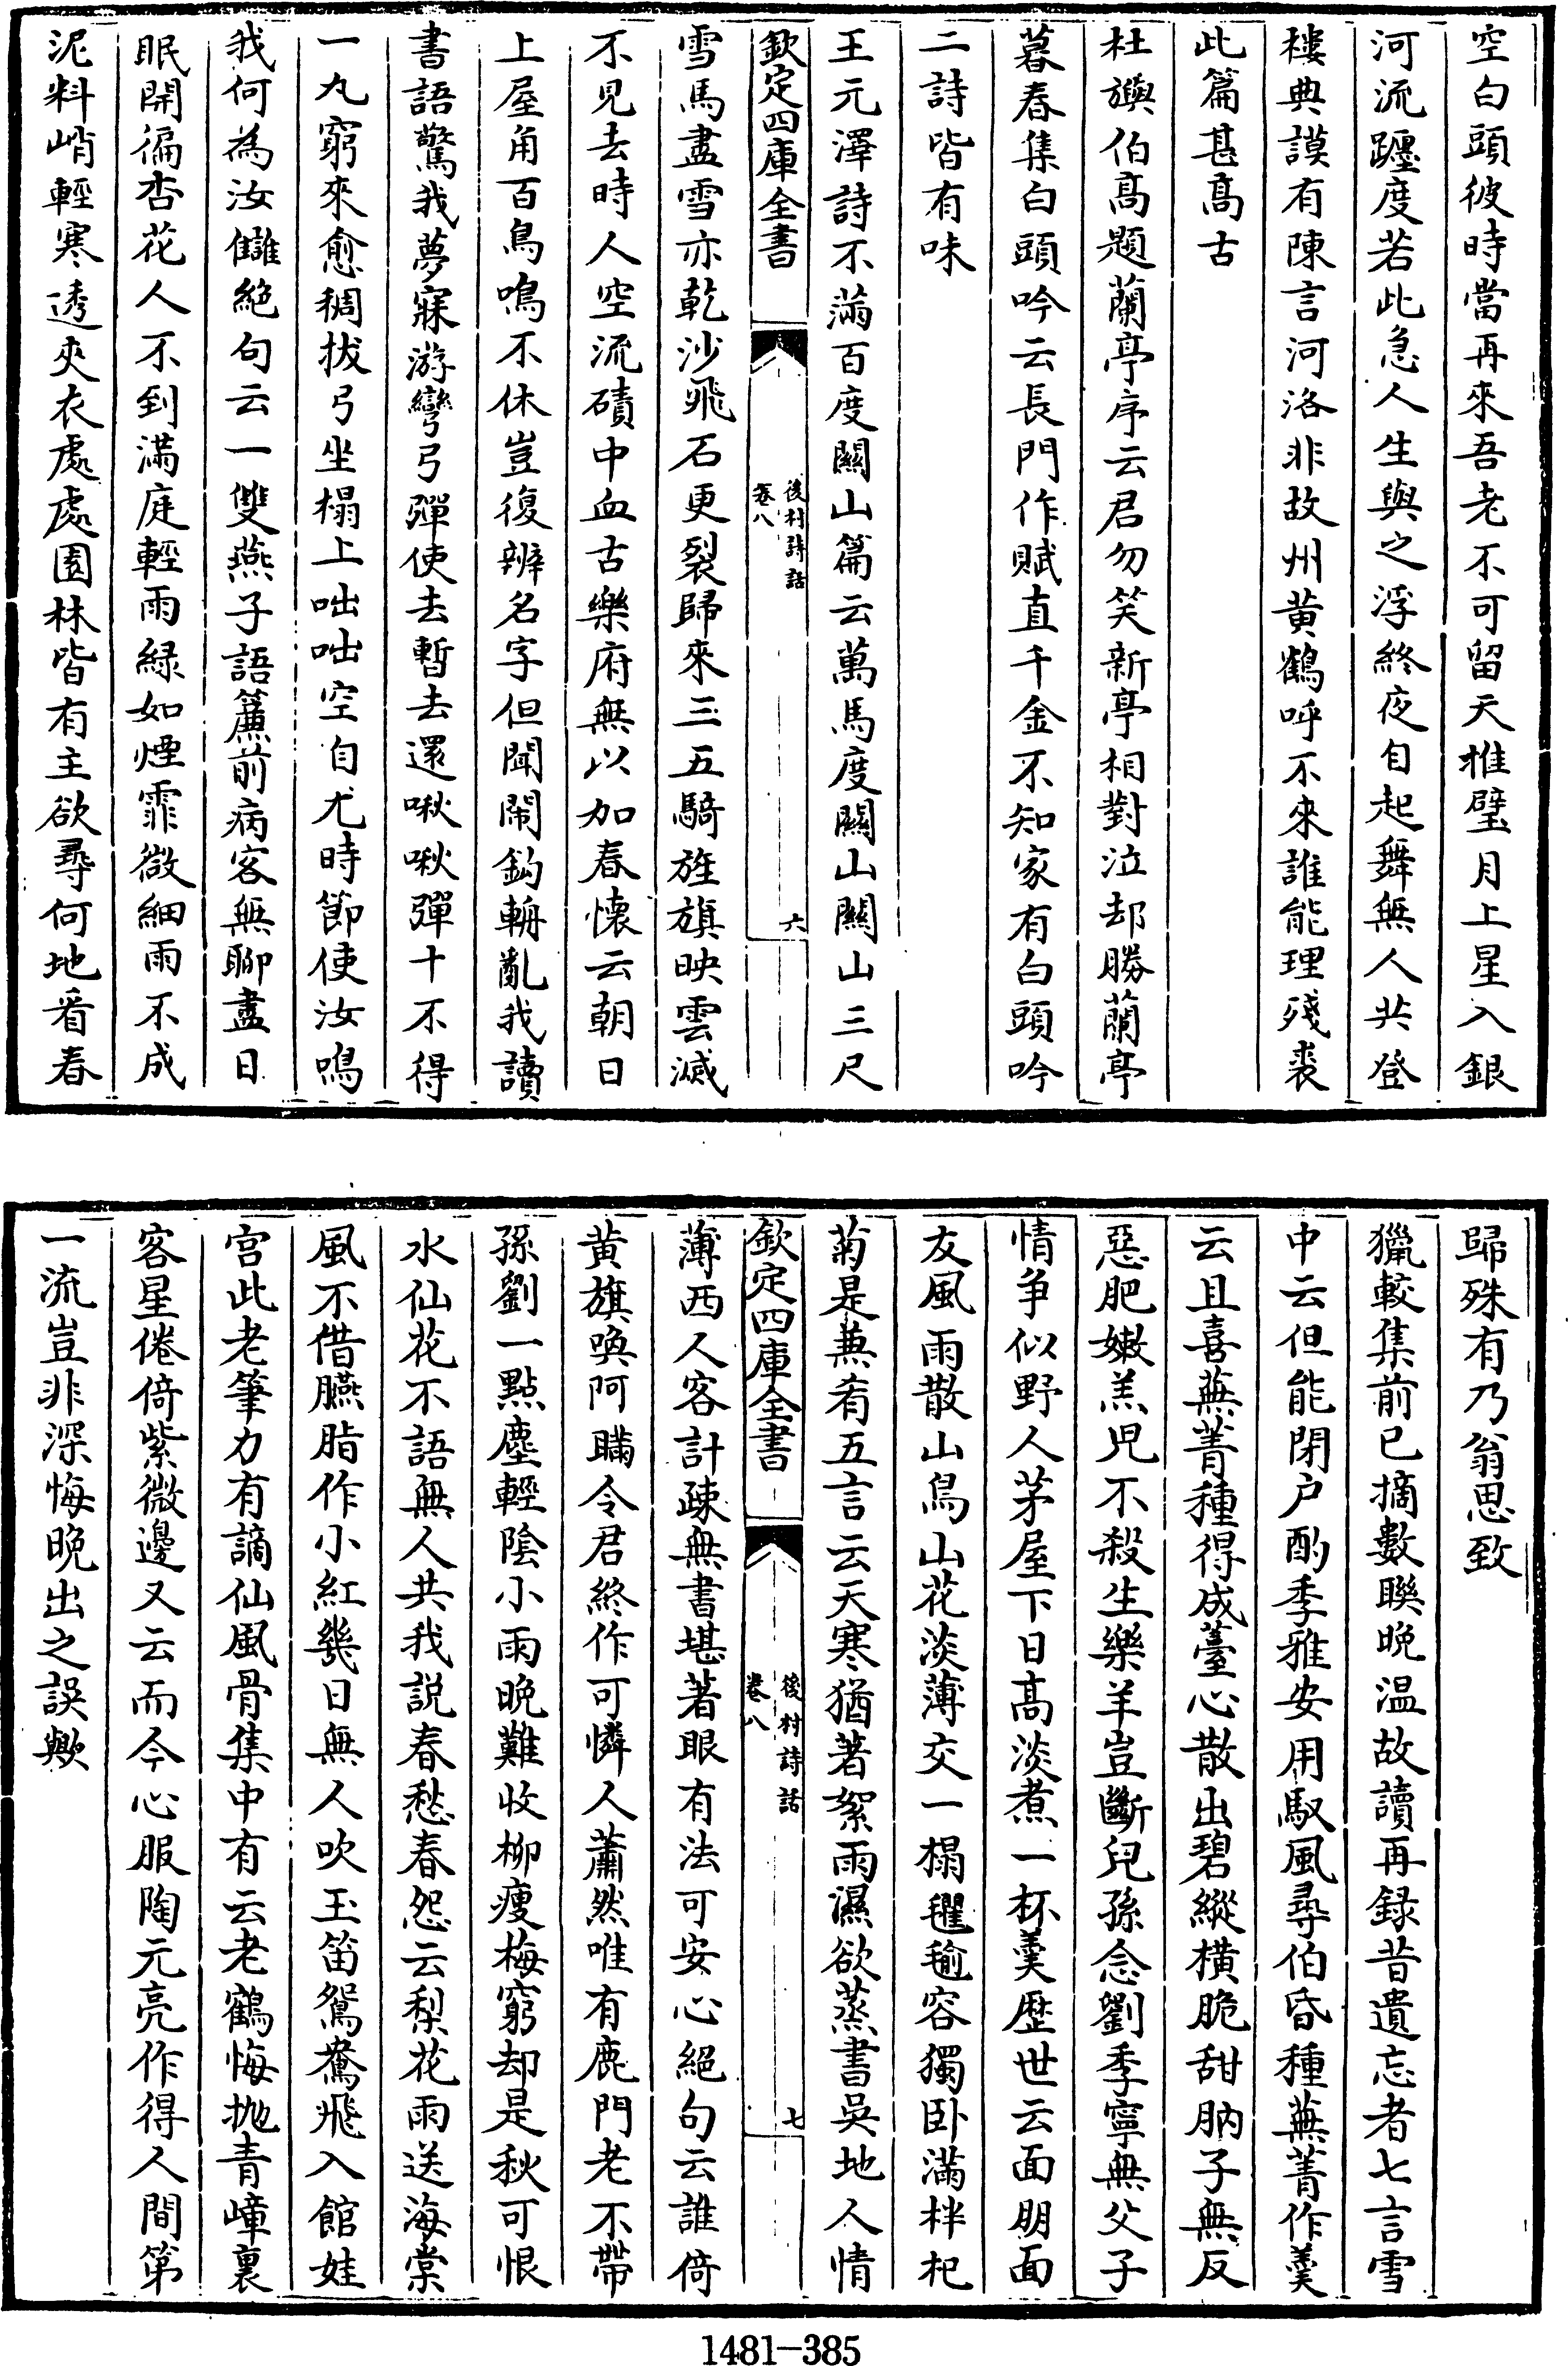 空白頭彼時當再來吾老不可留天推璧月上星入銀
河流躔度若此急人生與之浮終夜自起舞無人共登
樓典謨有陳言河洛非故州黄鶴呼不來誰能理殘裘
此篇甚髙古
杜旟伯髙題蘭亭序云君勿笑新亭相對泣却勝蘭亭
暮春集白頭吟云長門作賦直千金不知家有白頭吟
二詩皆有味
王元澤詩不滿百度闗山篇云萬馬度闗山闗山三尺
欽定四庫全書
後村詩話
卷八
六
雪馬盡雪亦乾沙飛石更裂歸來三五騎旌旗映雲滅
不見去時人空流磧中血古樂府無以加春懷云朝日
上屋角百鳥鳴不休豈復辨名字但聞鬧鈎輈亂我讀
書語驚我夢寐游彎弓彈使去暫去還啾啾彈十不得
一丸窮來愈稠拔弓坐榻上咄咄空自尤時節使汝鳴
我何為汝讎絶句云一雙燕子語簾前病客無聊盡日
眠開徧杏花人不到滿庭輕雨緑如煙霏微細雨不成
泥料峭輕寒透夾衣處處園林皆有主欲尋何地看春
歸殊有乃翁思致
獵較集前已摘數聯晩温故讀再録昔遺忘者七言雪
中云但能閉户酌季雅安用馭風尋伯昏種蕪菁作羮
云且喜蕪菁種得成薹心散出碧縱横脆甜肭子無反
惡肥嫩羔兒不殺生樂羊豈斷兒孫念劉季寧無父子
情争似野人茅屋下日髙淡煮一杯羮歴世云面朋面
友風雨散山鳥山花淡薄交一榻氍毹容獨卧滿柈杞
菊是兼肴五言云天寒猶著絮雨濕欲蒸書吳地人情
欽定四庫全書
後村詩話
卷八
七
薄西人客計疎無書堪著眼有法可安心絕句云誰倚
黄旗喚阿瞞令君終作可憐人蕭然唯有鹿門老不帶
孫劉一點塵輕陰小雨晩難收柳瘦梅窮却是秋可恨
水仙花不語無人共我説春愁春怨云梨花雨送海棠
風不借臙脂作小紅幾日無人吹玉笛鴛鴦飛入館娃
宫此老筆力有謫仙風骨集中有云老鶴悔抛青嶂裏
客星倦倚紫微邊又云而今心服陶元亮作得人間第
一流豈非深悔晩出之誤歟
1481-385